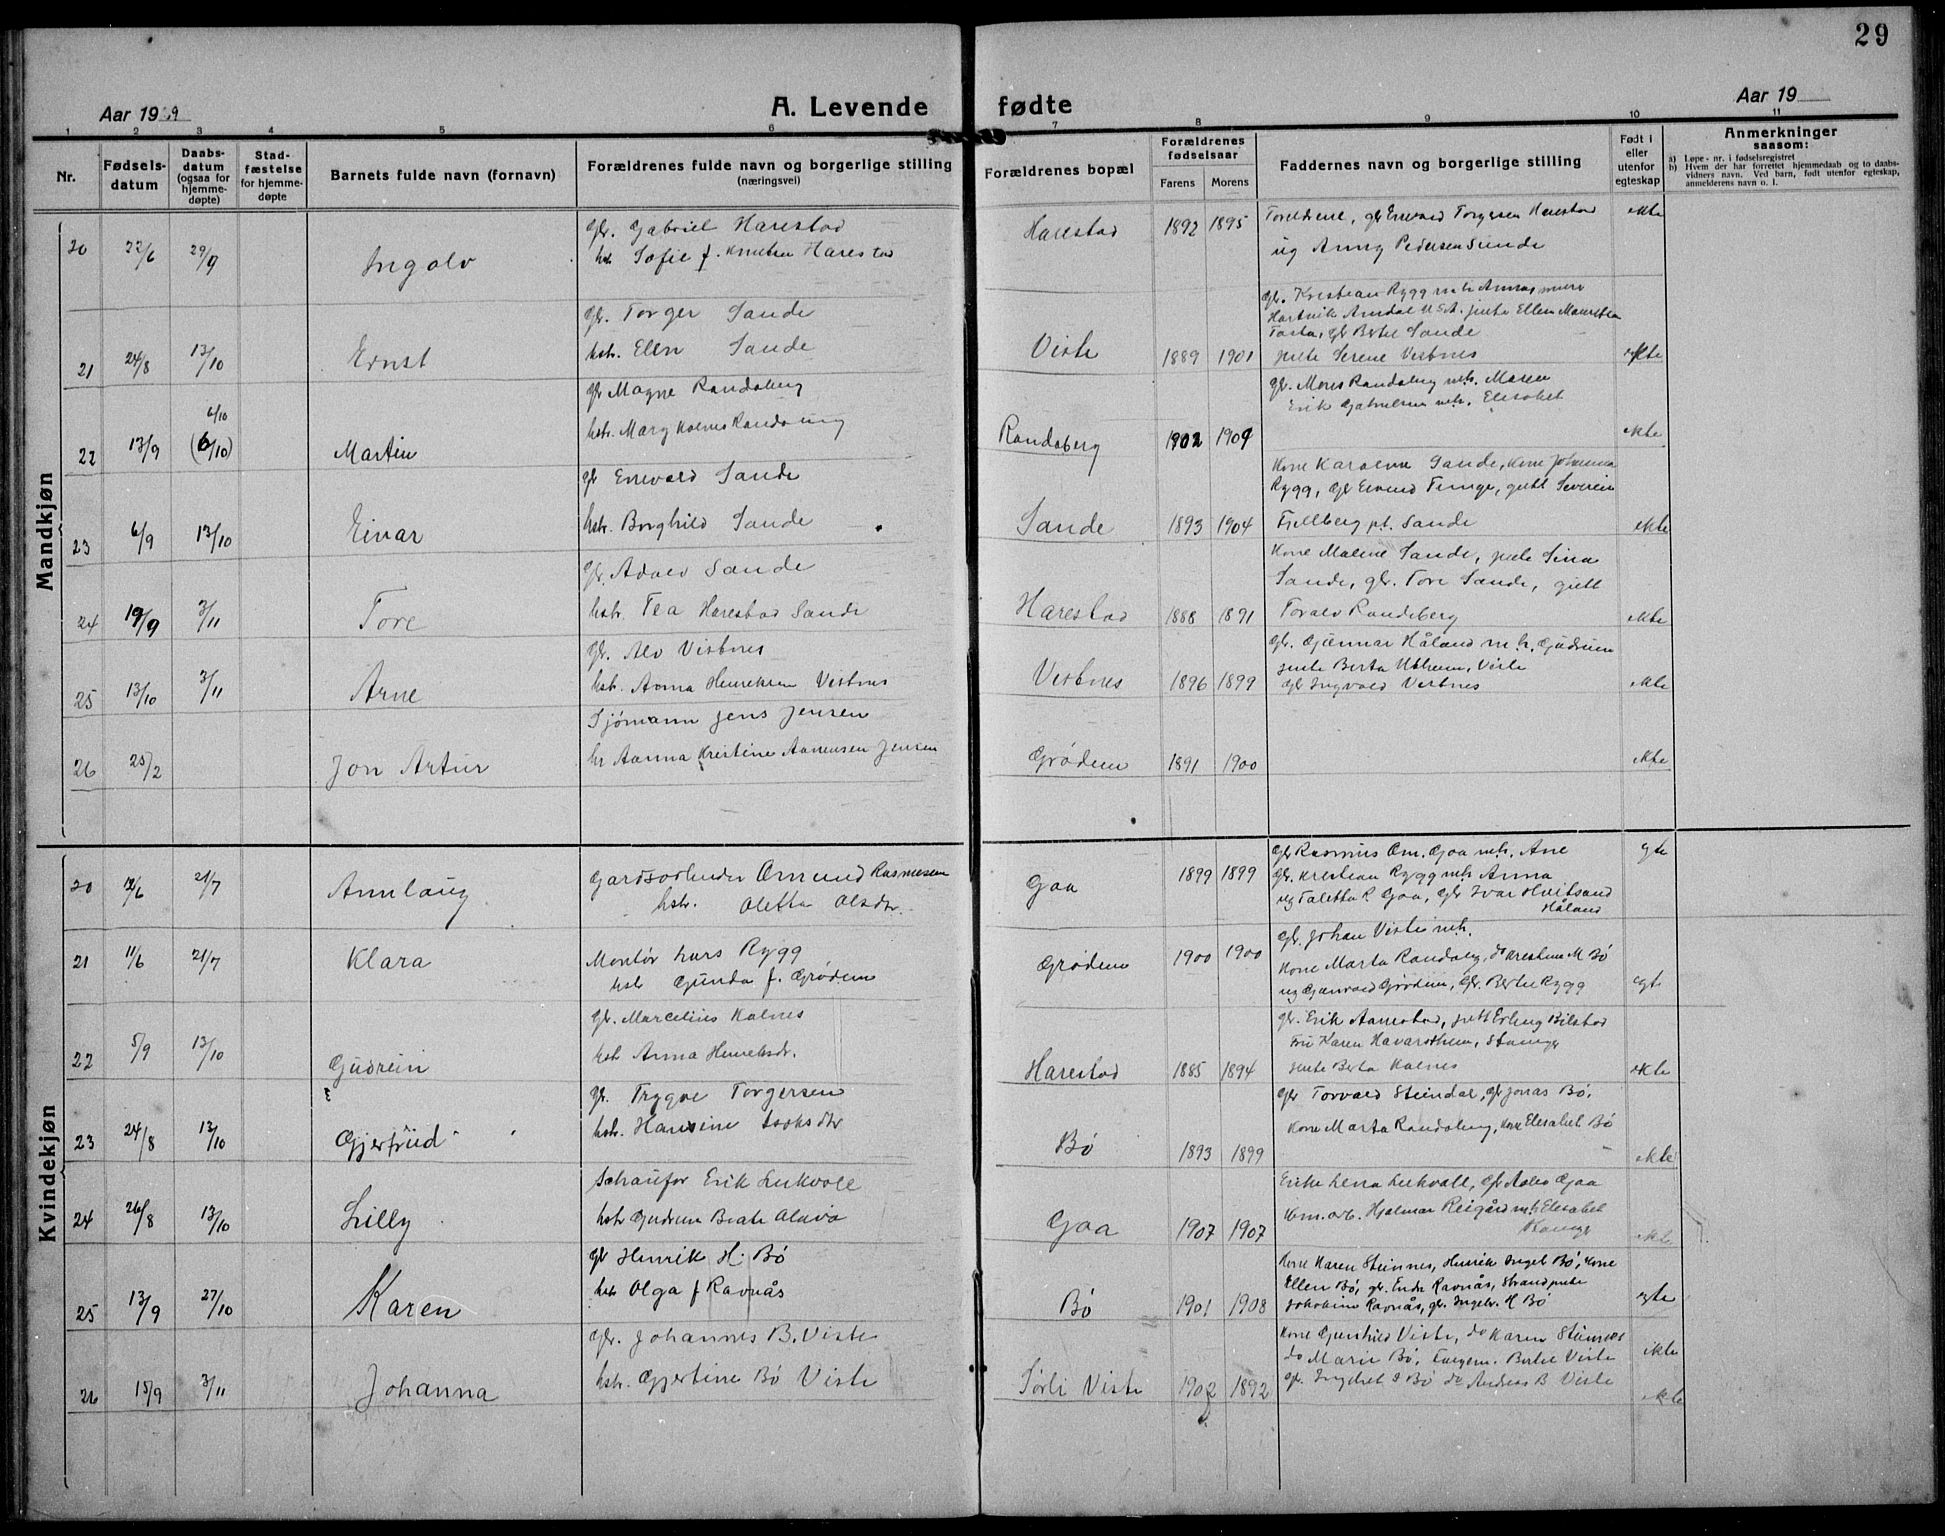 29
Aar 1929
A. Levende fødte
Aar 19
1 2 3 4 5 6 7 8 9 10 11
Nr.
Fødsels-
datum
Daabs-
datum
(ogsaa for
hjemme-
døpte)
Stad-
fæstelse
for hjemme-
døpte
Barnets fulde navn (fornavn)
Forældrenes fulde navn og borgerlige stilling
(næringsvei)
Forældrenes bopæl
Forældrenes
fødselsaar
Farens Morens
Faddernes navn og borgerlige stilling
Født i
eller
utenfor
egteskap
Anmerkninger
saasom:
a) Løpe-nr. i fødselsregistret
b) Hvem der har forrettet hjemmedaab og to daabs-
vidners navn. Ved barn, født utenfor egteskap,
anmelderens navn o. l.
Mandkjøn
20 22/6 29/9 Ingolv
Gbr. Gabriel Harestad
hstr. Sofie f. Knutsen Harestad
Harestad 1892 1895
Foreldrene, gbr Enevald Torgersen Harestad
ug Anny Pedersen Sunde
ekte
21 24/8 13/10 Ernst
Gbr. Torger Sande
hstr. Ellen Sande
Viste 1889 1901
Gbr. Kristian Rygg mh Anna
Hartvik Amdal U.S.A. jente Ellen
Tasta, gbr Bertel Sande
jente Serene Vistnes
ekte
22 13/9 6/10 (6/10) Martin
Gbr Magne Randaberg
hstr. Mary Kalnes Randaberg
Randaberg 1902 1909
Gbr. Mons Randaberg mh. Maren
Erik Gabrielsen mh. Elisabet
ekte
23 6/9 13/10 Einar
Gbr Enevald Sande
hstr. Borghild Sande
Sande 1893 1904
Kone Karoline Sande, Kone Johanna
Rygg, Gbr Eivind Tunge, gutt Severin
Fjellberg pt. Sande
ekte
24 19/9 3/11 Tore
Gbr. Adolv Sande
hstr. Tea Harestad Sande
Harestad 1888 1891
Kone Malene Sande, pike Sina
Sande, gbr. Tore Sande, gutt
Toralv Randeberg
ekte
25 13/10 3/11 Arne
Gbr. Alv Vistnes
hstr. Anna Henriksen Vistnes
Vistnes 1896 1899
Gbr. Gunnar Håland mh. Gudrun
jente Berta Utheim, Viste
Gbr Ingvald Vistnes
ekte
26 25/2 Jon Artur
Sjømann Jens Jensen
hr Aanna Kristine Aanensen Jensen
Grødem 1891 1900
ekte
Kvindekjøn
20 12/6 21/7 Annlaug
Gardsarbeider Omund Rasmussen
hstr. Oletta Olsdtr.
Goa 1899 1899
Gbr Rasmus Om. Goa mh. Ane
Gbr. Kristian Rygg mh Anna
ug Taletta R. Goa, Gbr Ivar Hvitsand
Håland
egte
21 11/6 21/7 Klara
Montør Lars Rygg
hstr Gunda f. Grødem
Grødem 1900 1900
Gbr. Johan Viste mh.
Kone Marta Randaberg, do Kristine M Bø
ug Gunvald Grødem, Gbr. Bertel Rygg
egt.
22 5/9 13/10 Gudrun
Gbr. Marcelius Kalnes
hstr Anna Henriksdr.
Harestad 1885 1894
Gbr. Erik Aanestad, gutt Erling Bilstad
Fru Karen Havarstheim, Stavnger
Jente Berta Kalnes
ekte
23 24/8 13/10 Gjertrud
Gbr. Trygve Torgersen
hstr. Hansine Isaksdtr
Bø 1893 1899
Gbr Torvald Steindal, Gbr Jonas Bø,
Kone Marta Randaberg, Kone Elisabet Bø
ekte
24 26/8 13/10 Lilly
Schaufør Erik Lukvall
hstr Gudrun Beate
Goa 1907 1907
Enke Lena Lukvall, Gbr Adolv Goa
Kom.arb. Hjalmar Reigård mh Elisabet
Stavnger
ekte
25 13/9 27/10 Karen
Gbr Henrik H. Bø
hstr Olga f Ravnås
Bø 1901 1908
Kone Karen Steinnes, Henrik Ingel Bø, Kone
Ellen Bø, gbr. Endre Ravnås, Strand jente
Jakobine Ravnås, gbr. Ingebr. H Bø
egte
26 15/9 3/11 Johanna
Gbr. Johannes B. Viste
hstr. Gjertine Bø Viste
Sørli Viste 1902 1892
Kone Gunhild Viste, do Karen Steinnes
do Marie Bø, Bertel Viste
gbr. Bø do Andreas B Viste
ekte
ekte